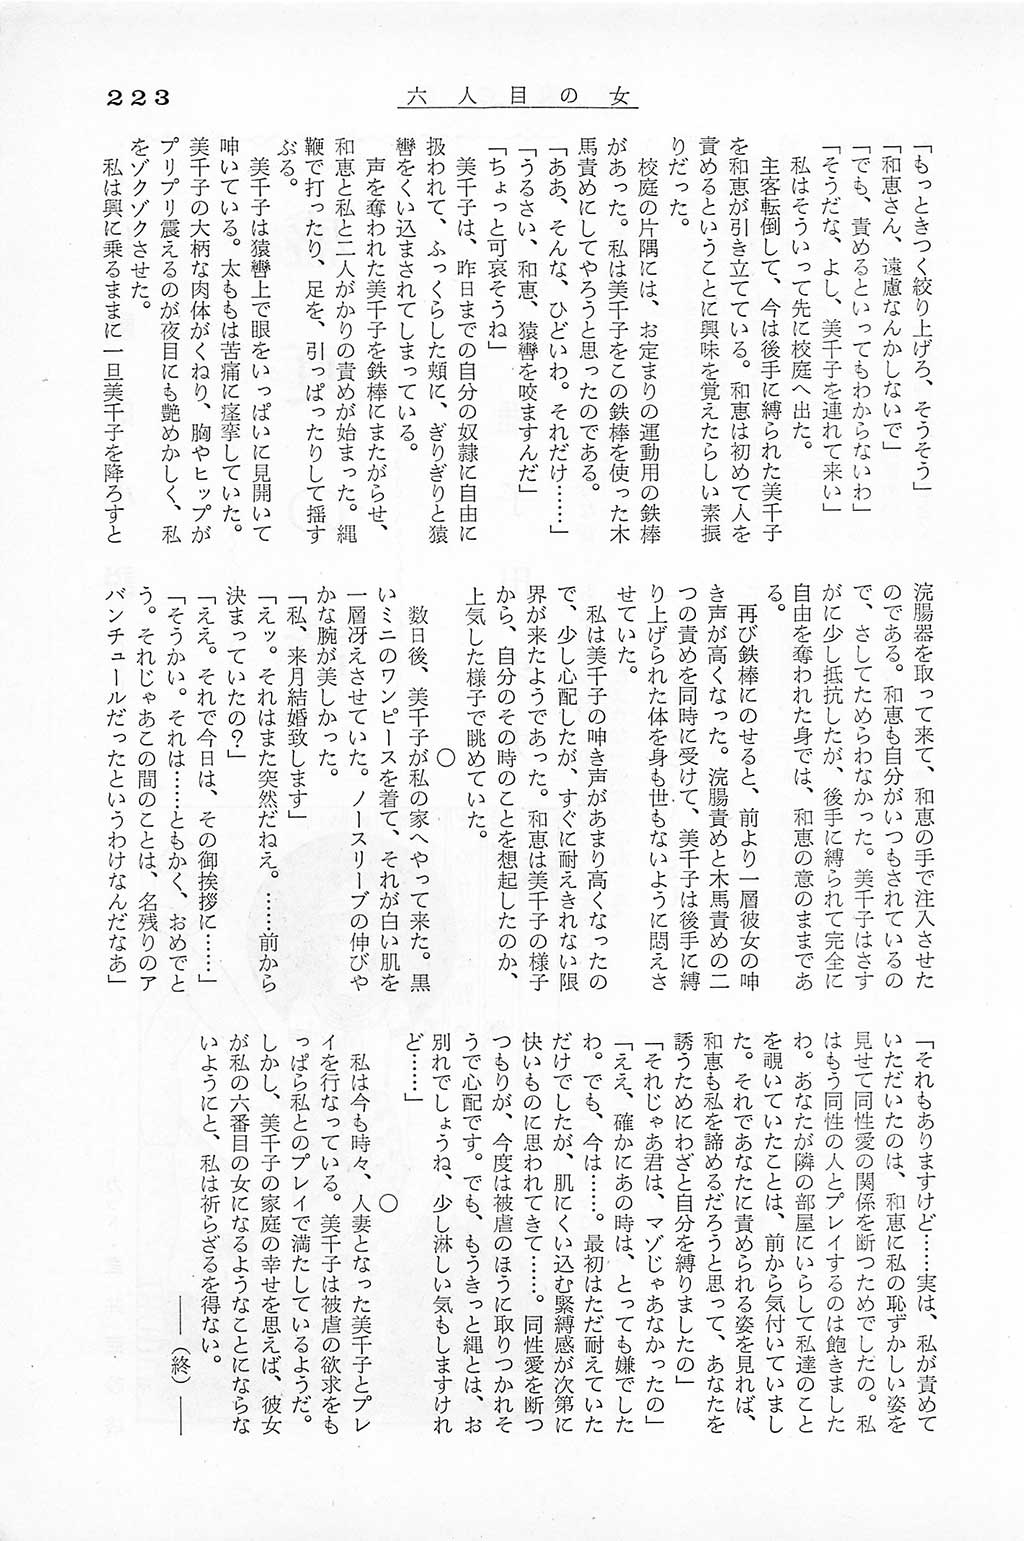 223
六人目の女
「もっときつく絞り上げろ、そうそう」
「和恵さん、遠慮なんかしないで」
「でも、責めるといってもわからないわ」
「そうだな、よし、美千子を連れて来い」
私はそういって先に校庭へ出た。
主客転倒して、今は後手に縛られた美千子
を和恵が引き立てている。和恵は初めて人を
責めるということに興味を覚えたらしい素振
りだった。
校庭の片隅には、お定まりの運動用の鉄棒
があった。私は美千子をこの鉄棒を使った木
馬責めにしてやろうと思ったのである。
「ああ、そんな、ひどいわ。それだけ……」
「うるさい、和恵、猿轡を咬ますんだ」
「ちょっと可哀そうね」
美千子は、昨日までの自分の奴隷に自由に
扱われて、ふっくらした頬に、ぎりぎりと猿
轡をくい込まされてしまっている。
声を奪われた美千子を鉄棒にまたがらせ、
和恵と私と二人がかりの責めが始まった。縄
鞭で打ったり、足を、引っぱったりして揺す
ぶる。
美千子は猿轡上で眼をいっぱいに見開いて
呻いている。太ももは苦痛に痙攣していた。
美千子の大柄な肉体がくねり、胸やヒップが
プリプリ震えるのが夜目にも艶めかしく、私
をゾクゾクさせた。
私は興に乗るままに一旦美千子を降ろすと
浣腸器を取って来て、和恵の手で注入させた
のである。和恵も自分がいつもされているの
で、さしてためらわなかった。美千子はさす
がに少し抵抗したが、後手に縛られて完全に
自由を奪われた身では、和恵の意のままであ
る。
再び鉄棒にのせると、前より一層彼女の呻
き声が高くなった。浣腸責めと木馬責めの二
つの責めを同時に受けて、美千子は後手に縛
り上げられた体を身も世もないように悶えさ
せていた。
私は美千子の呻き声があまり高くなったの
で、少し心配したが、すぐに耐えきれない限
界が来たようであった。和恵は美千子の様子
から、自分のその時のことを想起したのか、
上気した様子で眺めていた。
○
数日後、美千子が私の家へやって来た。黒
いミニのワンピースを着て、それが白い肌を
一層冴えさせていた。ノースリーブの伸びや
かな腕が美しかった。
「私、来月結婚致します」
「えッ。それはまた突然だねえ。……前から
決まっていたの？」
「ええ。それで今日は、その御挨拶に……」
「そうかい。それは……ともかく、おめでと
う。それじゃあこの間のことは、名残りのア
バンチュールだったというわけなんだなあ」
「それもありますけど……実は、私が責めて
いただいたのは、和恵に私の恥ずかしい姿を
見せて同性愛の関係を断つためでしたの。私
はもう同性の人とプレイするのは飽きました
わ。あなたが隣の部屋にいらして私達のこと
を覗いていたことは、前から気付いていまし
た。それであなたに責められる姿を見れば、
和恵も私を諦めるだろうと思って、あなたを
誘うためにわざと自分を縛りましたの」
「それじゃあ君は、マゾじゃあなかったの」
「ええ、確かにあの時は、とっても嫌でした
わ。でも、今は……。最初はただ耐えていた
だけでしたが、肌にくい込む緊縛感が次第に
快いものに思われてきて……。同性愛を断つ
つもりが、今度は被虐のほうに取りつかれそ
うで心配です。でも、もうきっと縄とは、お
別れでしょうね、少し淋しい気もしますけれ
ど……」
○
私は今も時々、人妻となった美千子とプレ
イを行なっている。美千子は被虐の欲求をも
っぱら私とのプレイで満たしているようだ。
しかし、美千子の家庭の幸せを思えば、彼女
が私の六番目の女になるようなことにならな
いようにと、私は祈らざるを得ない。
――（終）――